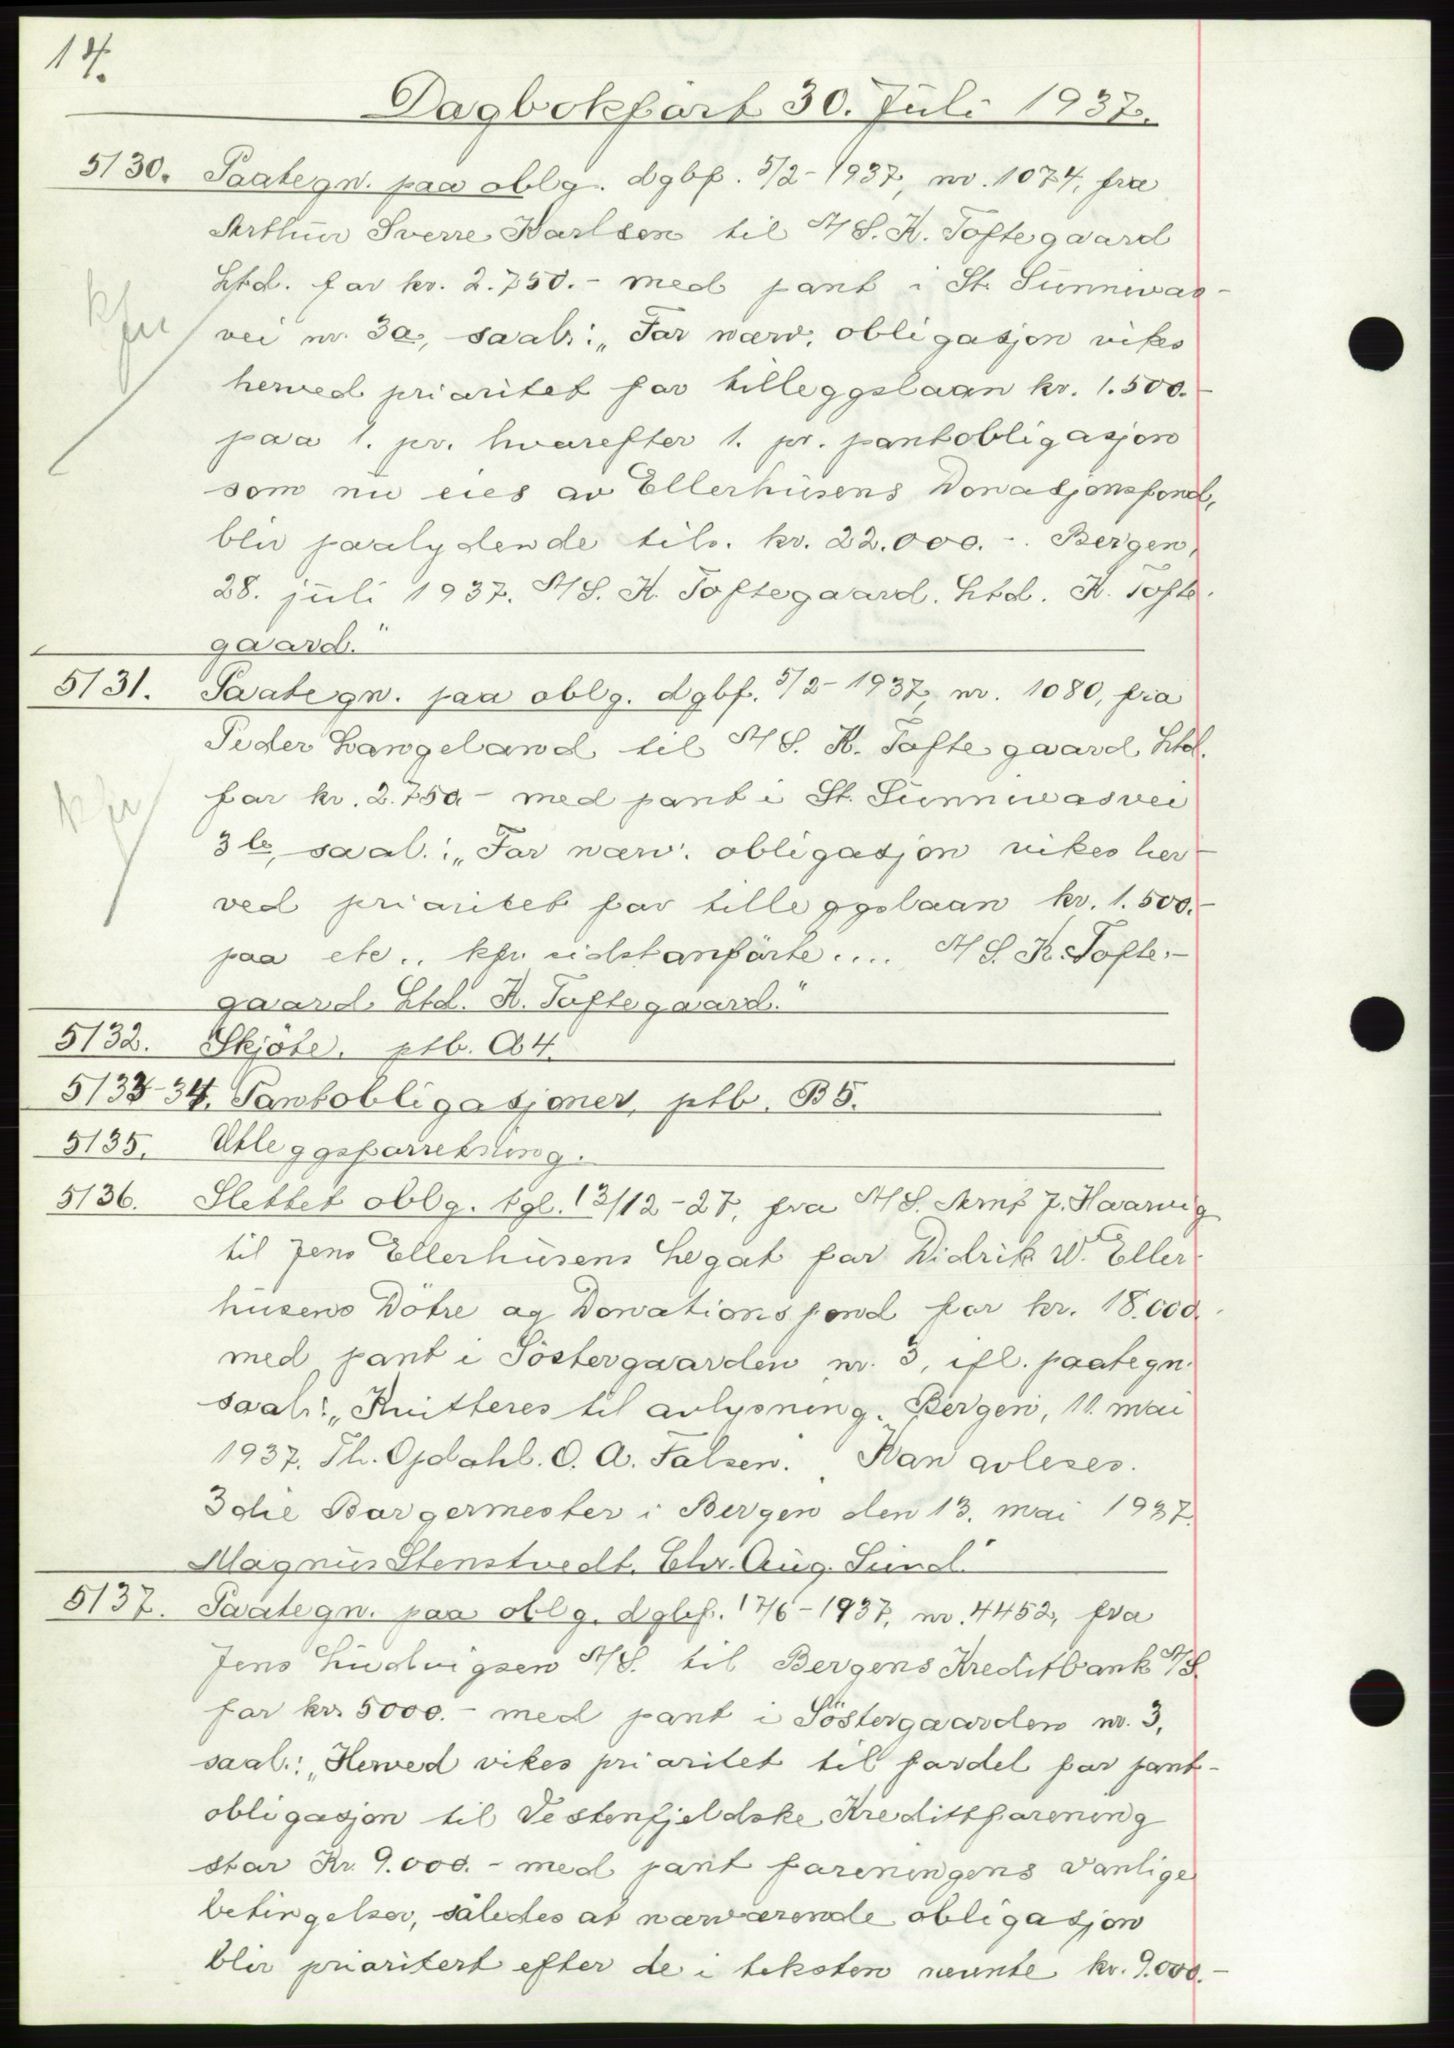 14.
Dagbokfört 30. Juli 1937.
5130. Paategn. paa oblg. dgbf. 5/2-1937, nr. 1074, fra
Arthur Sverre Karlsen til A/S. K. Toftegaard
Ltd. for kr. 2.750.- med pant i St. Sunnivas-
kfr vei nr. 3a, saal.: „For nærv. obligasjon vikes
herved prioritet for tilleggslaan kr. 1.500.-
paa 1. pr. hvorefter 1. pr. pantobligasjon
som nu eies av Ellerhusens Donasjonsfond,
blir paalydende tils. kr. 22.000.-. Bergen,
28. juli 1937. A/S. K. Toftegaard. Ltd. K. Tofte-
gaard."
5131. Paategn. paa oblg. dgbf. 5/2-1937, nr. 1080, fra
Peder Langeland til A/S. K. Toftegaard Ltd.
kfr for kr. 2.750.- med pant i St. Sunnivasvei
3b, saal.: „For nærv. obligasjon vikes her-
ved prioritet for tilleggslaan kr. 1.500.-
paa etc.. kfr. sidstanførte.... A/S. K. Tofte-
gaard Ltd. K. Toftegaard."
5132. Skjöte, ptb. A4.
5133-34. Pantobligasjoner, ptb. B5.
5135. Utleggsforretning.
5136. Slettet oblg. tgl. 13/12-27, fra A/S. Arnt J. Haarvig
til Jens Ellerhusens Legat for Didrik W. Eller-
husens Dötre og Donationsfond for kr. 18.000.
med pant i Söstergaarden nr. 3, ifl. paategn.
saal.: „Kvitteres til avlysning. Bergen, 11. mai
1937. Th. Opdahl. O. A. Falsen. Kan avleses.
3die Borgermester i Bergen den 13. mai 1937.
Magnus Stenstvedt. Chr. Aug. Sund."
5137. Paategn. paa oblg. dgbf. 17/6-1937, nr. 4452, fra
Jens Ludvigsen A/S. til Bergens Kreditbank A/S.
for kr. 5000.- med pant i Söstergaarden nr. 3,
saal.: „Herved vikes prioritet til fordel for pant-
obligasjon til Vestenfjeldske Kreditforening
stor Kr. 9.000.- med pant foreningens vanlige
betingelser, således at nærværende obligasjon
blir prioritert efter de i teksten nevnte kr. 9.000.-